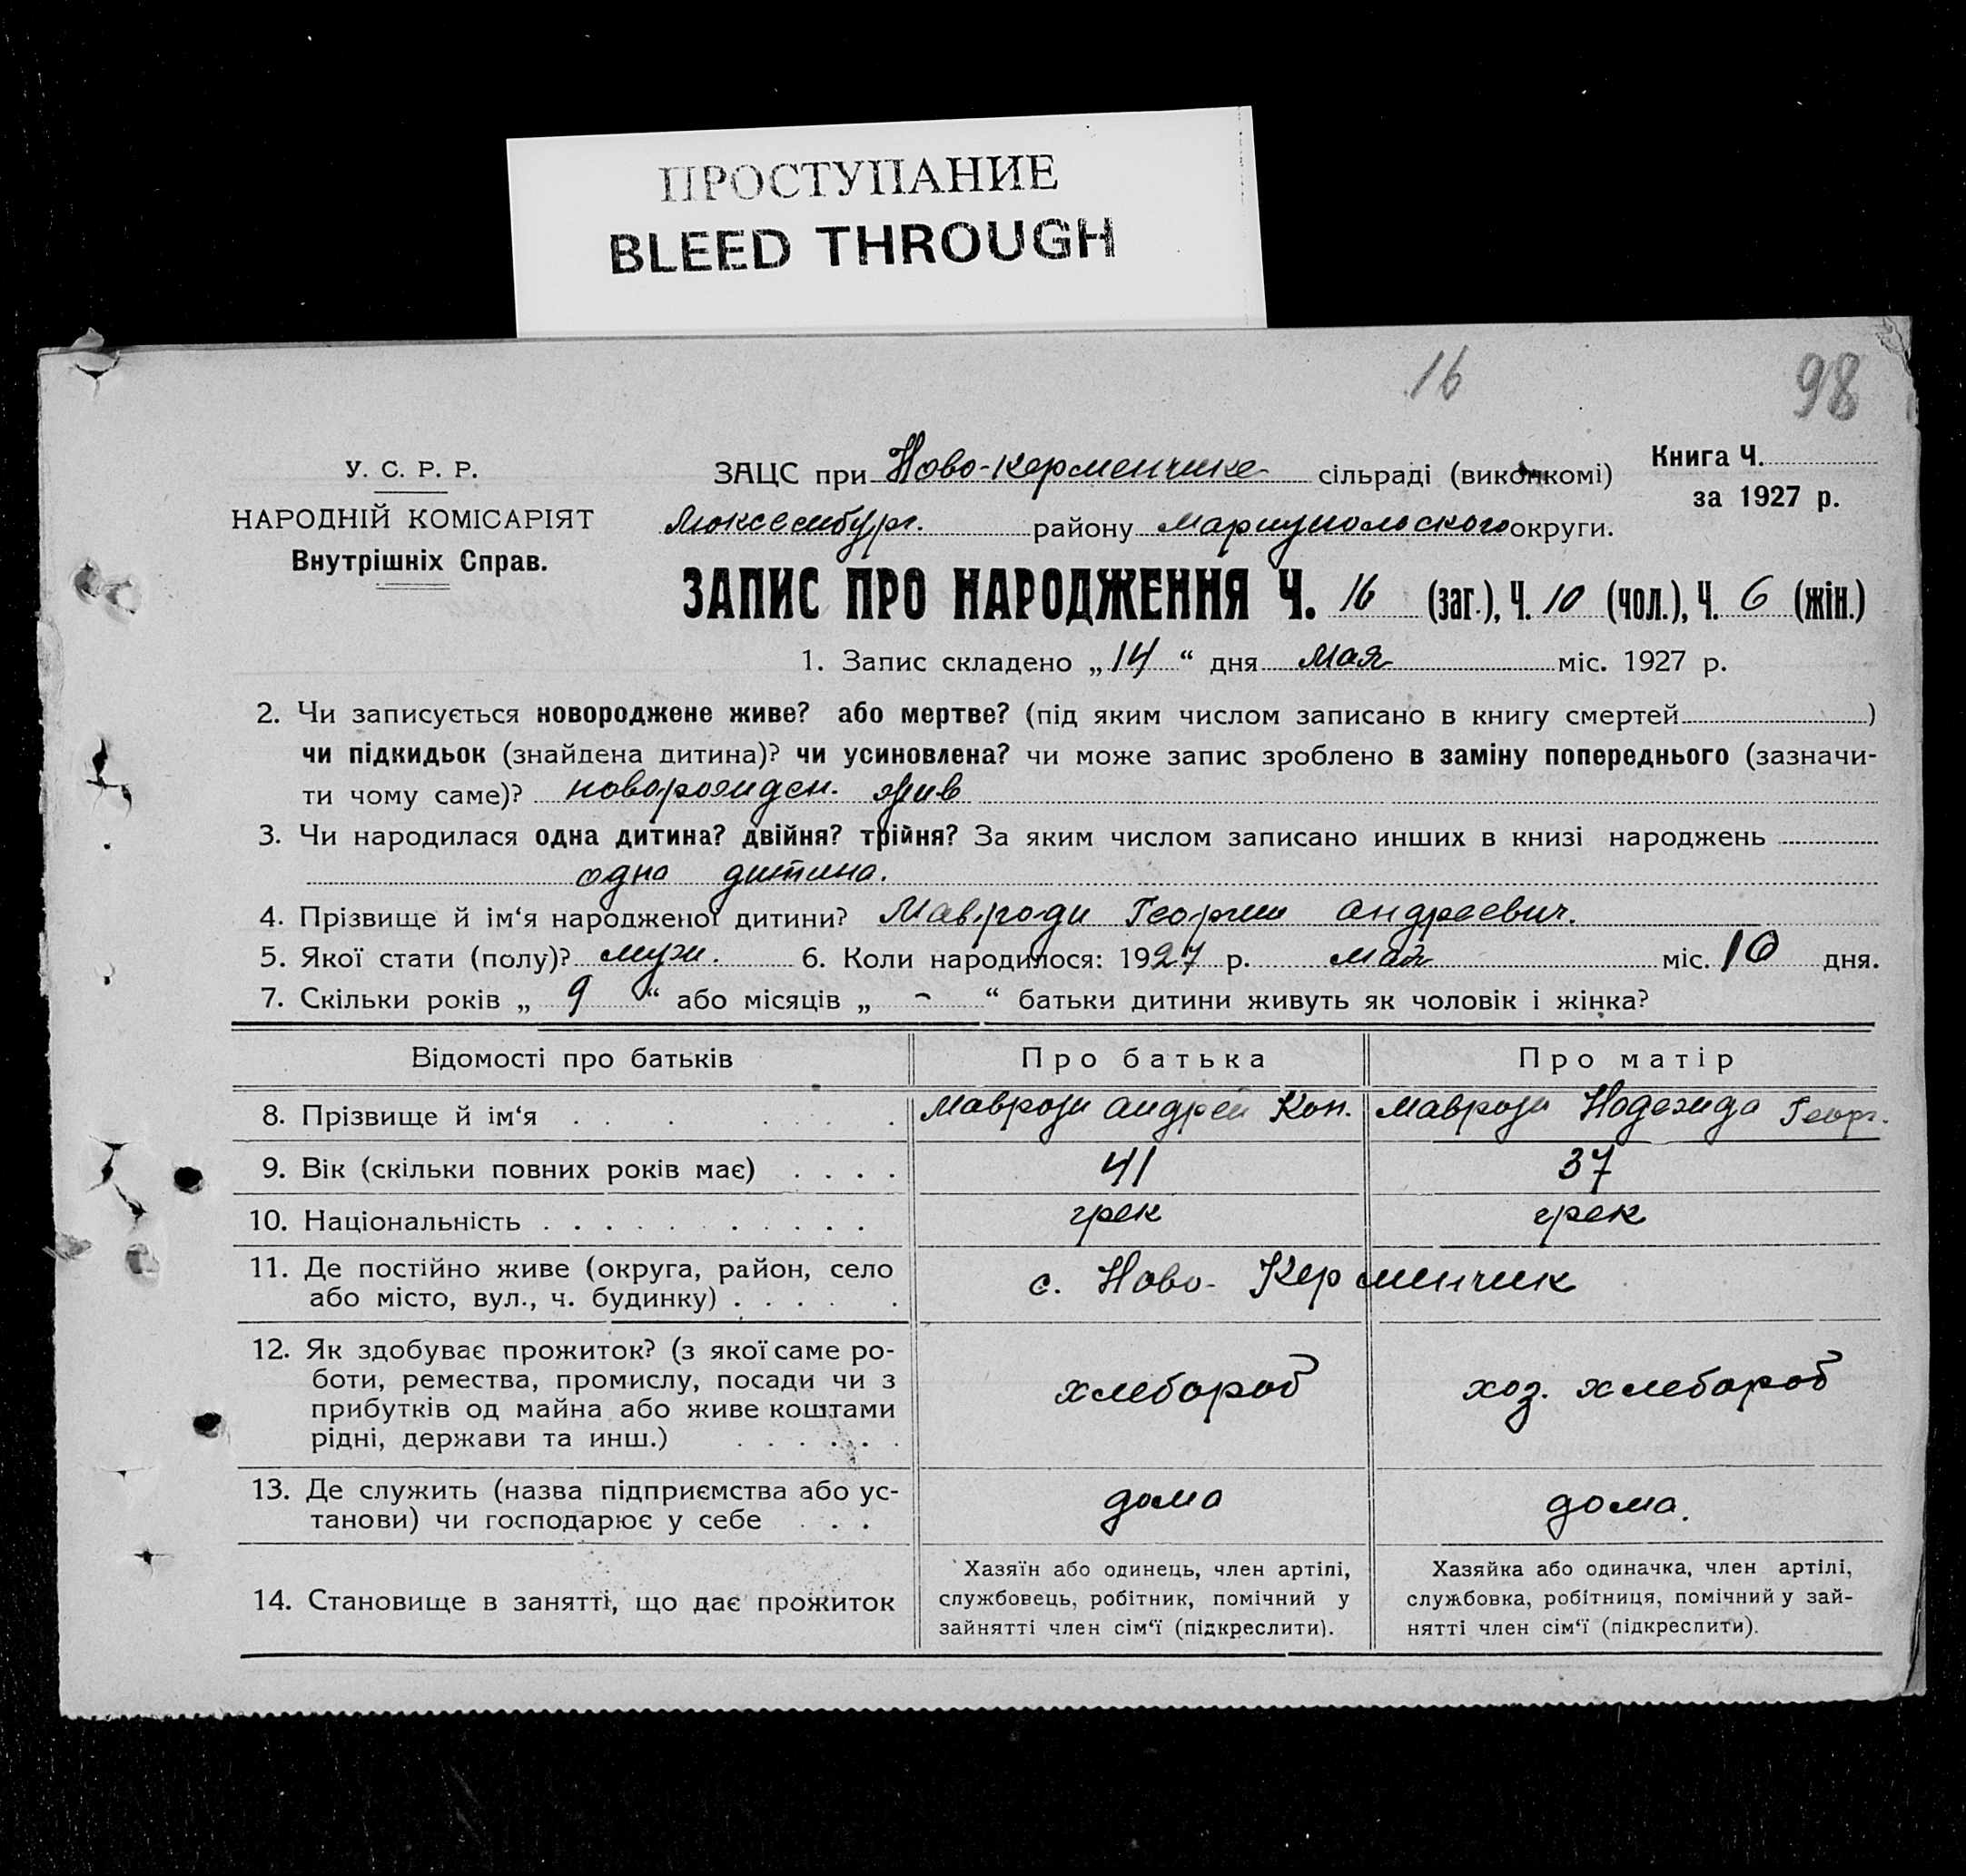 ПРОСТУПАНИЕ
BLEED THROUGH
16
98
У. С. Р. Р.
НАРОДНІЙ КОМІСАРІЯТ
Внутрішніх Справ.
ЗАЦС при Ново-Керменчике сільраді (виконкомі)
Люксембург. району Мариупольского округи.
Книга Ч.
за 1927 р.
ЗАПИС ПРО НАРОДЖЕННЯ Ч. 16 (заг.), Ч. 10 (чол.), Ч. 6 (жін.)
1. Запис складено „14“ дня Мая міс. 1927 р.
2. Чи записується новороджене живе? або мертве? (під яким числом записано в книгу смертей )
чи підкидьок (знайдена дитина)? чи усиновлена? чи може запис зроблено в заміну попереднього (зазначи-
ти чому саме)? новорожден. жив
3. Чи народилася одна дитина? двійня? трійня? За яким числом записано инших в книзі народжень
одна дитина.
4. Прізвище й ім‘я народженої дитини? Мавроди Георгий Андреевич.
5. Якої стати (полу)? муж. 6. Коли народилося: 1927 р. мая міс. 10 дня.
7. Скільки років „ 9 “ або місяців „ - “ батьки дитини живуть як чоловік і жінка?
Відомості про батьків Про батька Про матір
8. Прізвище й ім‘я . . . . . . Мавроди Андрей Кон. Мавроди Надежда Георг.
9. Вік (скільки повних років має) . . . . 41 37
10. Національність . . . . . . . . . . . грек грек
11. Де постійно живе (округа, район, село
або місто, вул., ч. будинку) . . . . . .
с. Ново-Керменчик
12. Як здобуває прожиток? (з якої саме ро-
боти, ремества, промислу, посади чи з
прибутків од майна або живе коштами
рідні, держави та инш.) . . . . . .
хлебороб хоз. хлебороб
13. Де служить (назва підприємства або ус-
танови) чи господарює у себе . . .
дома дома.
14. Становище в занятті, що дає прожиток
Хазяїн або одинець, член артілі,
службовець, робітник, помічний у
зайнятті член сім‘ї (підкреслити).
Хазяйка або одиначка, член артілі,
службовка, робітниця, помічний у зай-
нятті член сім‘ї (підкреслити).